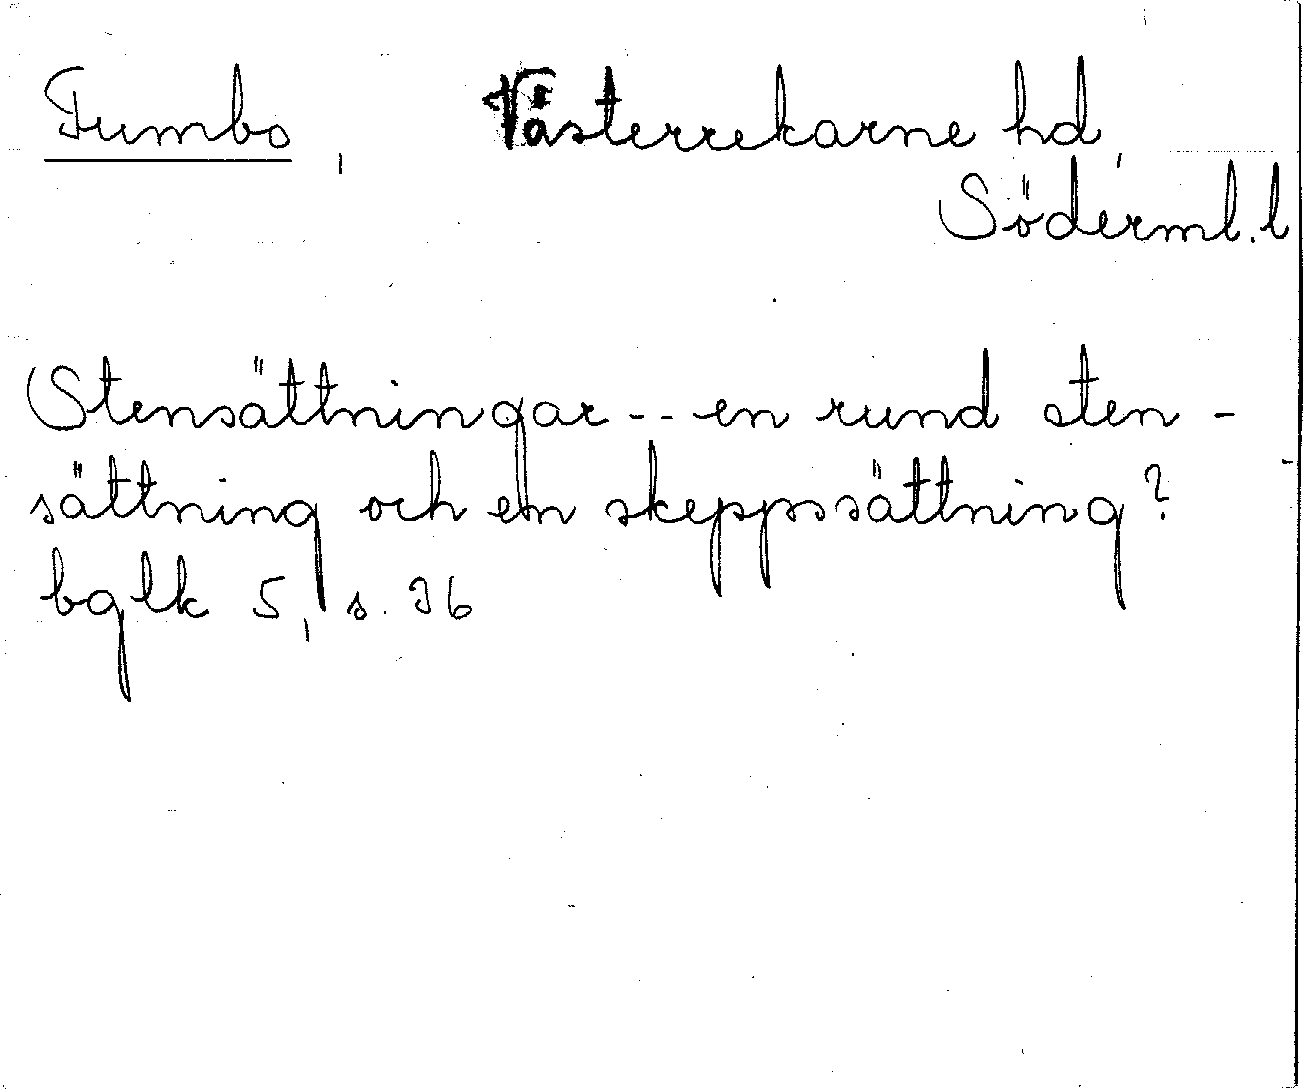 Tumbo, Västerrekarne hd,
Söderml. l
Stensättningar -- en rund sten-
sättning och en skeppssättning?
bglk 5, s. 36